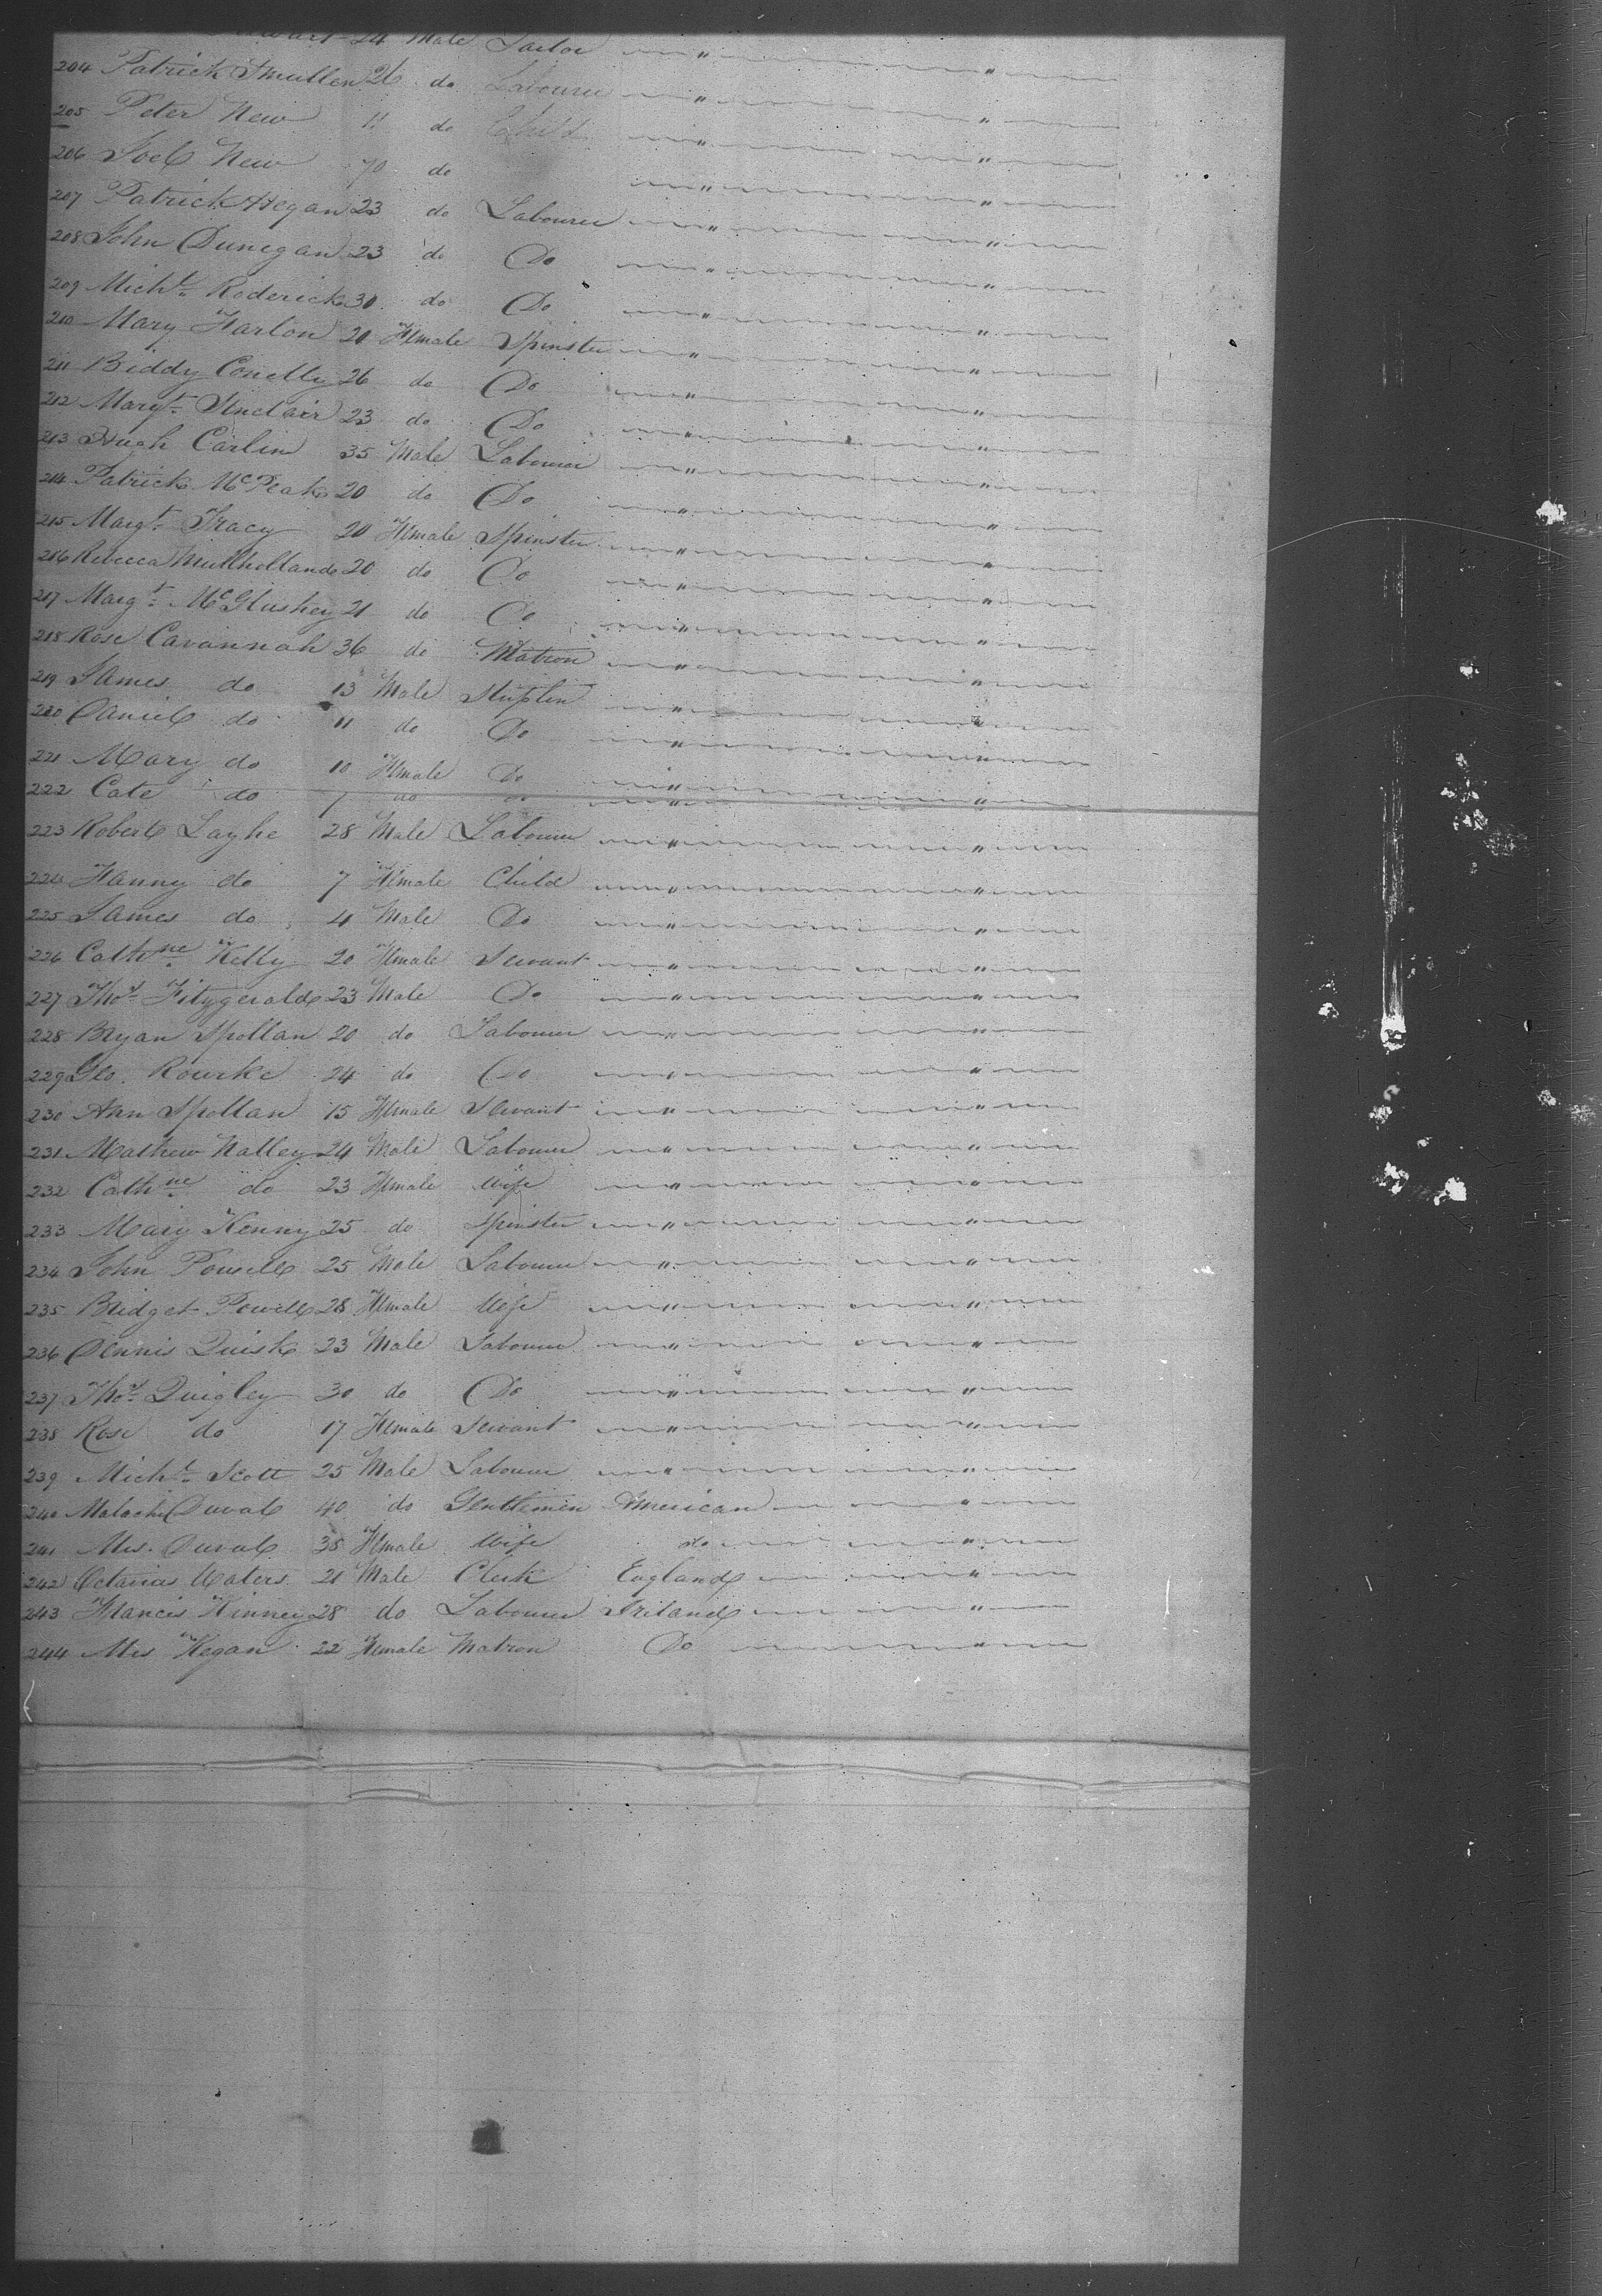 24 Male Tailor " "
204 Patrick Smullen 26 do Labourer " "
205 Peter New 11 do Child " "
206 Joel New 70 do " "
207 Patrick Hegan 23 do Labourer " "
208 John Dunegan 23 do Do " "
209 Michl. Roderick 30 do Do " "
210 Mary Harlon 20 Female Spinster " "
211 Biddy Conelly 26 do Do " "
212 Margt. Sinclair 23 do Do " "
213 Hugh Carlin 35 Male Labourer " "
214 Patrick McPeak 20 do Do " "
215 Margt. Tracy 20 Female Spinster " "
216 Rebecca Mullholland 20 do Do " "
217 Margt. McGlushey 21 do Do " "
218 Rose Cavannah 36 do Matron " "
219 James do 13 Male " "
220 Daniel do 11 do Do " "
221 Mary do 10 Female Do " "
222 Cate do 7 do do " "
223 Robert Layhe 28 Male Labourer " "
224 Fanny do 7 Female Child " "
225 James do 4 Male Do " "
226 Cathne. Kelly 20 Female Servant " "
227 Thos. Fitzgerald 23 Male Do " "
228 Bryan Spollan 20 do Labourer " "
229 Geo. Rourke 24 do Do " "
230 Ann Spollan 15 Female Servant " "
231 Mathew Nalley 24 Male Labourer " "
232 Cathne. do 23 Female Wife " "
233 Mary Kenny 25 do Spinster " "
234 John Powell 25 Male Labourer " "
235 Bridget Powell 28 Female Wife " "
236 Dennis Quisk 23 Male Labourer " "
237 Thos. Quigley 30 do Do " "
238 Rose do 17 Female Servant " "
239 Michl. Scott 25 Male Labourer " "
240 Malachi Duval 40 do Gentlemen American "
241 Mrs. Duval 35 Female Wife do "
242 Octavius Waters 21 Male Clerk England "
243 Francis Kinney 28 do Labourer Ireland "
244 Mrs Hegan 22 Female Matron Do "